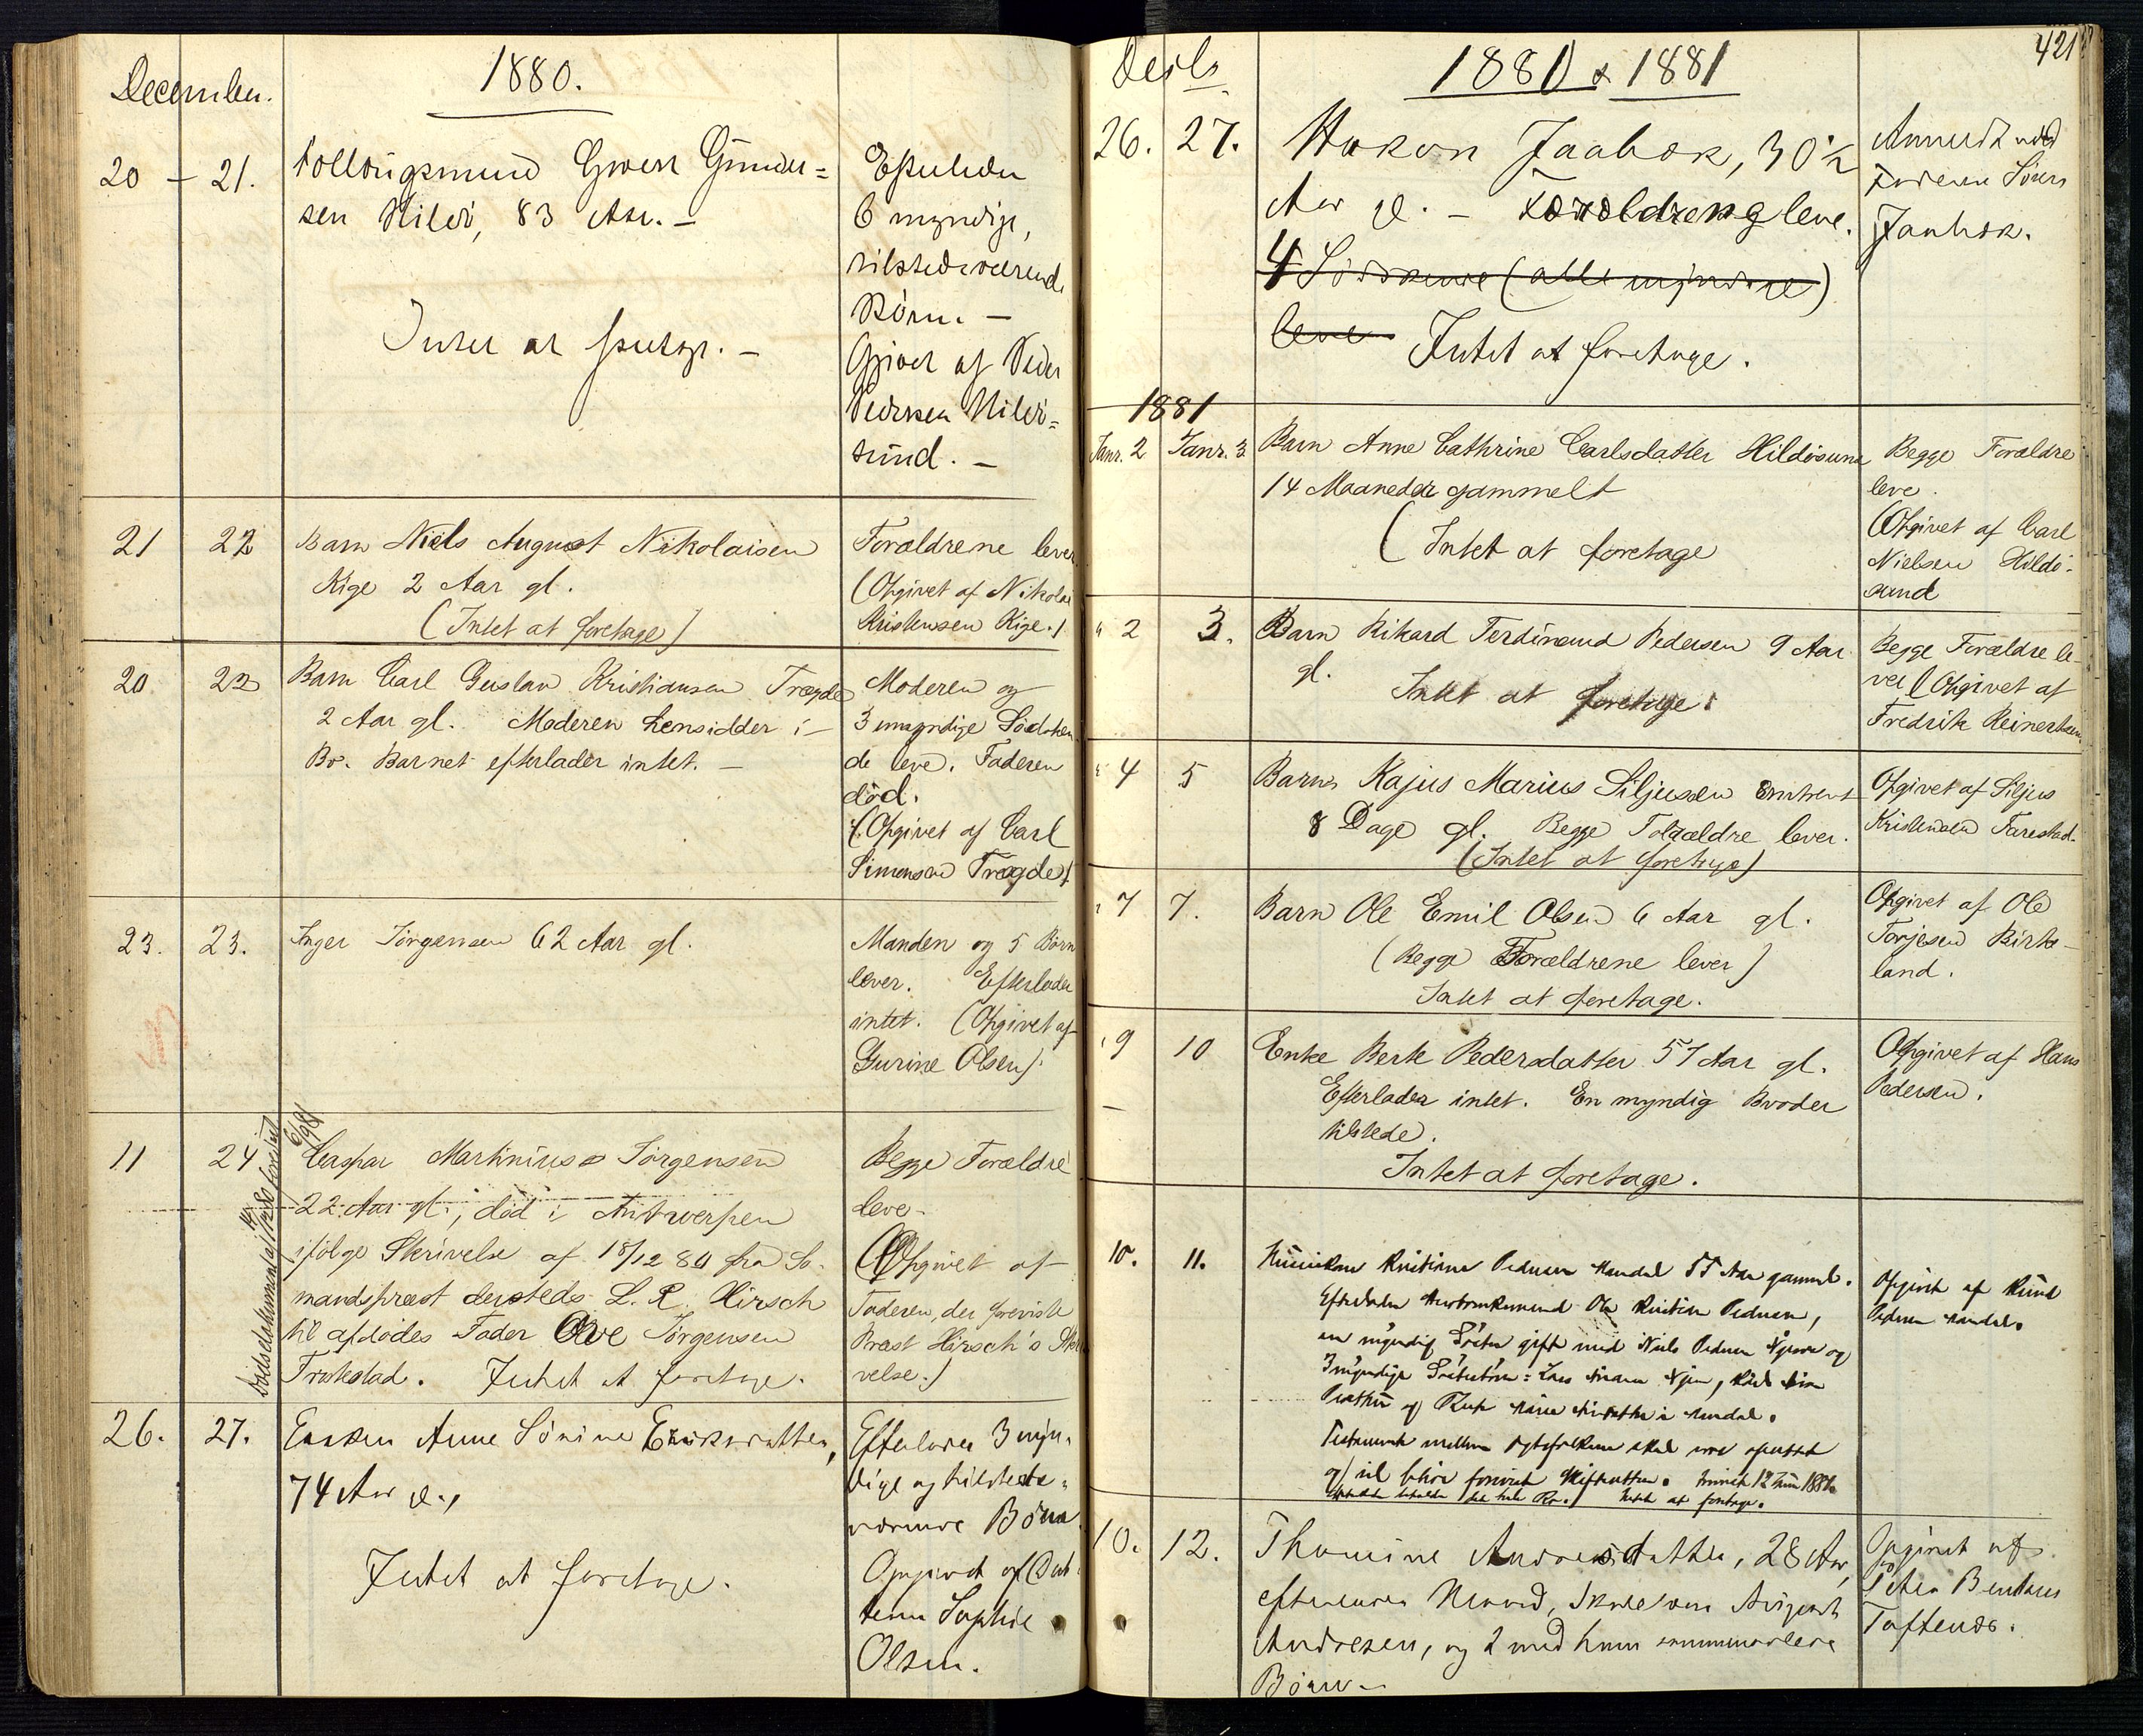 December.
1880.
20 – 21.
Toldbugsmand Gjert Gunder=
sen Hillö, 83 Aar. –
Intet at foretage. –
Efterlader
6 myndige,
tilstedeværende
Börn. –
Opgivet af Peder
Pedersen Hillö=
sund. –
21 22
Barn Niels August Nikolaisen
Kige 2 Aar gl.
(Intet at foretage)
Forældrene lever
(Opgivet af Nikolai
Kristensen Kige.)
20 22
Barn Carl Gustav Kristiansen Trægde
2 Aar gl. Moderen hensidder i
Bo. Barnet efterlader intet. –
Moderen og
3 umyndige Södsken-
de leve. Faderen
död.
(Opgivet af Carl
Simonsen Trægde)
23. 23.
Inger Jörgensen 62 Aar gl.
Manden og 5 Börn
lever. Efterlader
intet. (Opgivet af
Gurine Olsen)
11 24
Dödsdokument af 14/12 80 forevist 6/1 81
Caspar Martinius Jörgensen
22 Aar gl., död i Antwerpen
ifölge Skrivelse af 18/12 80 fra Sö-
mandspræst dersteds L. R. Hirsch
til afdödes Fader Ove Jörgensen
Frukstad. Intet at foretage.
Begge Forældre
leve.
(Opgivet af
Faderen, der foreviste
Præst Hirsch's Skri
velse.)
26. 27.
Enken Anne Sörine Eriksdatter,
74 Aar gl.,
Intet at foretage.
Efterlader 3 myn-
dige og tilstede-
værende Börn
Opgivet af Dat-
teren Sophie
Olsen.
421
Desbr
1880 & 1881
26. 27.
Hakon Jaabæk, 30½
Aar gl. – Forældrene leve.
4 Södskende (alle myndige)
leve Intet at foretage.
Anmeldt ved
Faderen Sören
Jaabæk.
1881
Janr. 2 Janr. 3
Barn Anne Cathrine Carlsdatter Hildösund
14 Maaneder gammelt
(Intet at foretage
Begge Forældre
leve.
(Opgivet af Carl
Nielsen Hildö-
sund
" 2 3.
Barn Rikard Ferdinand Pedersen 9 Aar
gl.
Intet at foretage.
Begge Forældre le-
ver (Opgivet af
Fredrik Reinertsen
" 4 5
Barn Kajus Marius Siljusen omtrent
8 Dage gl. Begge Forældre lever.
(Intet at foretage)
Opgivet af Siljus
Kristensen Farestad.
" 7 7.
Barn Ole Emil Olsen 6 Aar gl.
(Begge Forældrene lever)
Intet at foretage.
Opgivet af Ole
Torjesen Birke-
land.
" 9 10
Enke Berte Pedersdatter 57 Aar gl.
Efterlader intet. En myndig Broder
tilstede.
Intet at foretage.
Opgivet af Hans
Pedersen.
10. 11.
Kristine Pedersen Mandal 55 Aar gammel.
Efterlader Ole Kristian Pedersen,
en myndig Söster gift med Niels Pedersen og
3 myndige Lars
og i Mandal.
Testament mellem Ægtefolkene skal være oprettet
og vil blive forevist Skifteretten. 12 1881.
Intet at foretage.
Opgivet af Knud
Pedersen Mandal.
10. 12.
Thomine Andreasdatter, 28 Aar,
efterlader Mand, August
Andresen, og 2 med ham sammenavlede
Börn –
Opgivet af
Peter Berntsen
Toftenes.